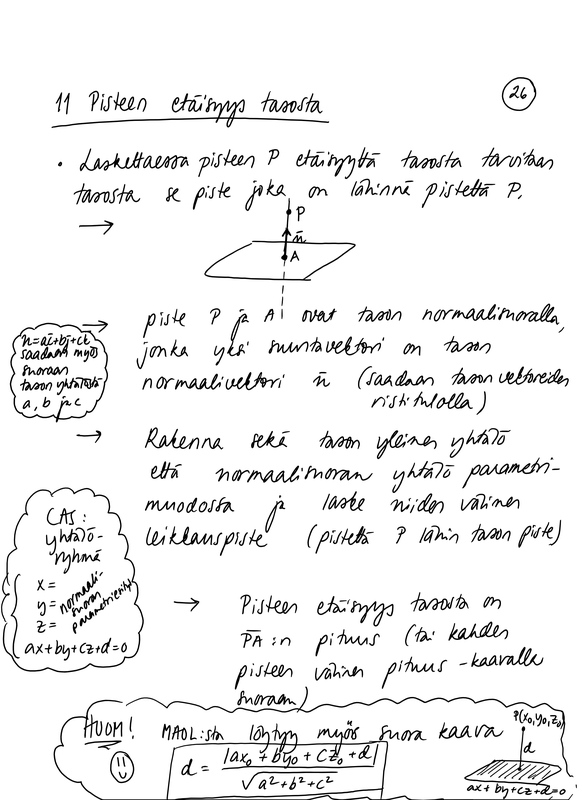 11 Pisteen etäisyys tasosta
26
• Laskettaessa pisteen P etäisyyttä tasosta tarvitaan
tasosta se piste joka on lähinnä pistettä P.
→
P
n̄
A
→ piste P ja A ovat tason normaalisuoralla,
jonka yksi suuntavektori on tason
normaalivektori n̄ (saadaan tasovektoreiden
ristitulolla)
n̄=aī+bj̄+ck̄
saadaan myös
suoraan
tason yhtälöstä
a, b ja c
→ Rakenna sekä tason yleinen yhtälö
että normaalisuoran yhtälö parametri-
muodossa ja laske niiden välinen
leikkauspiste (pistettä P lähin tason piste)
CAS:
yhtälö-
ryhmä
x =
y =
z =
normaali-
suoran
parametriesitys
ax+by+cz+d=0
→ Pisteen etäisyys tasosta on
P̄Ā:n pituus (tai kahden
pisteen välinen pituus -kaavalla
suoraan)
HUOM! MAOL:sta löytyy myös suora kaava
d = |ax₀ + by₀ + cz₀ + d| / √(a² + b² + c²)
P(x₀,y₀,z₀)
d
ax + by + cz + d = 0